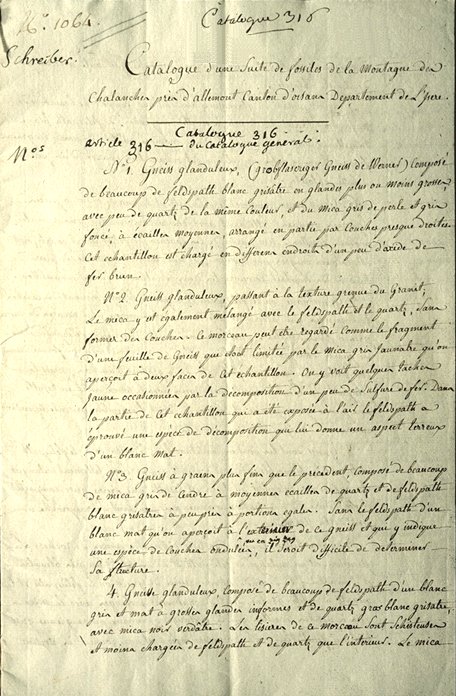 N.º 1064.
Catalogue 316
Schreiber.
Catalogue d'une Suite de fossiles de la Montagne des
Chalanches près d'allemont Canton d'oisans Departement de L'Isere.
Catalogue 316
N.os
article 316 — du Catalogue general.
N.º 1. Gneiss glanduleux, (grobflaseriger Gneiss de Werner) Composé
de beaucoup de feldspath blanc grisâtre en glandes plus ou moins grosses
avec peu de quartz de la même Couleur, et du mica gris de perle et gris
foncé, à ecailles moyennes, arrangé en partie par Couches presque droites.
Cet echantillon est chargé en differens endroits d'un peu d'oxide de
fer brun.
N.º 2. Gneiss glanduleux, passant à la texture grenue du Granit.
Le mica y est également melangé avec le feldspath et le quartz, Sans
former des Couches. Ce morceau peut être regardé comme le fragment
d'une feuille de Gneiss que étoit limitée par le mica gris jaunatre qu'on
aperçoit à deux faces de Cet echantillon. On y voit quelques taches
jaune occasionnées par la decomposition d'un peu de Sulfure de fer. Dans
la partie de Cet echantillon qui a été exposée à l'air le feldspath a
éprouvé une espèce de décomposition qui lui donne un aspect terreux
d'un blanc mat.
N.º 3. Gneiss à grains plus fins que le precedent, composé de beaucoup
de mica gris de Cendre à moyennes ecailles de quartz et de feldspath
blanc grisatres à peu près à portions egales. Sans le feldspath d'un
blanc mat qu'on aperçoit à l'exterieur de ce gneiss et qui y indique
ou en zig zag
une espèce de Couches onduleux, il seroit difficile de determiner
Sa structure.
4. Gneiss glanduleux, composé de beaucoup de feldspath d'un blanc
gris et mat à grosses glandes informes et de quartz gras blanc grisatre,
avec mica noir verdâtre. Les lisieres de ce morceau sont Schisteuses
et moins chargées de feldspath et de quartz que l'interieur. Le mica